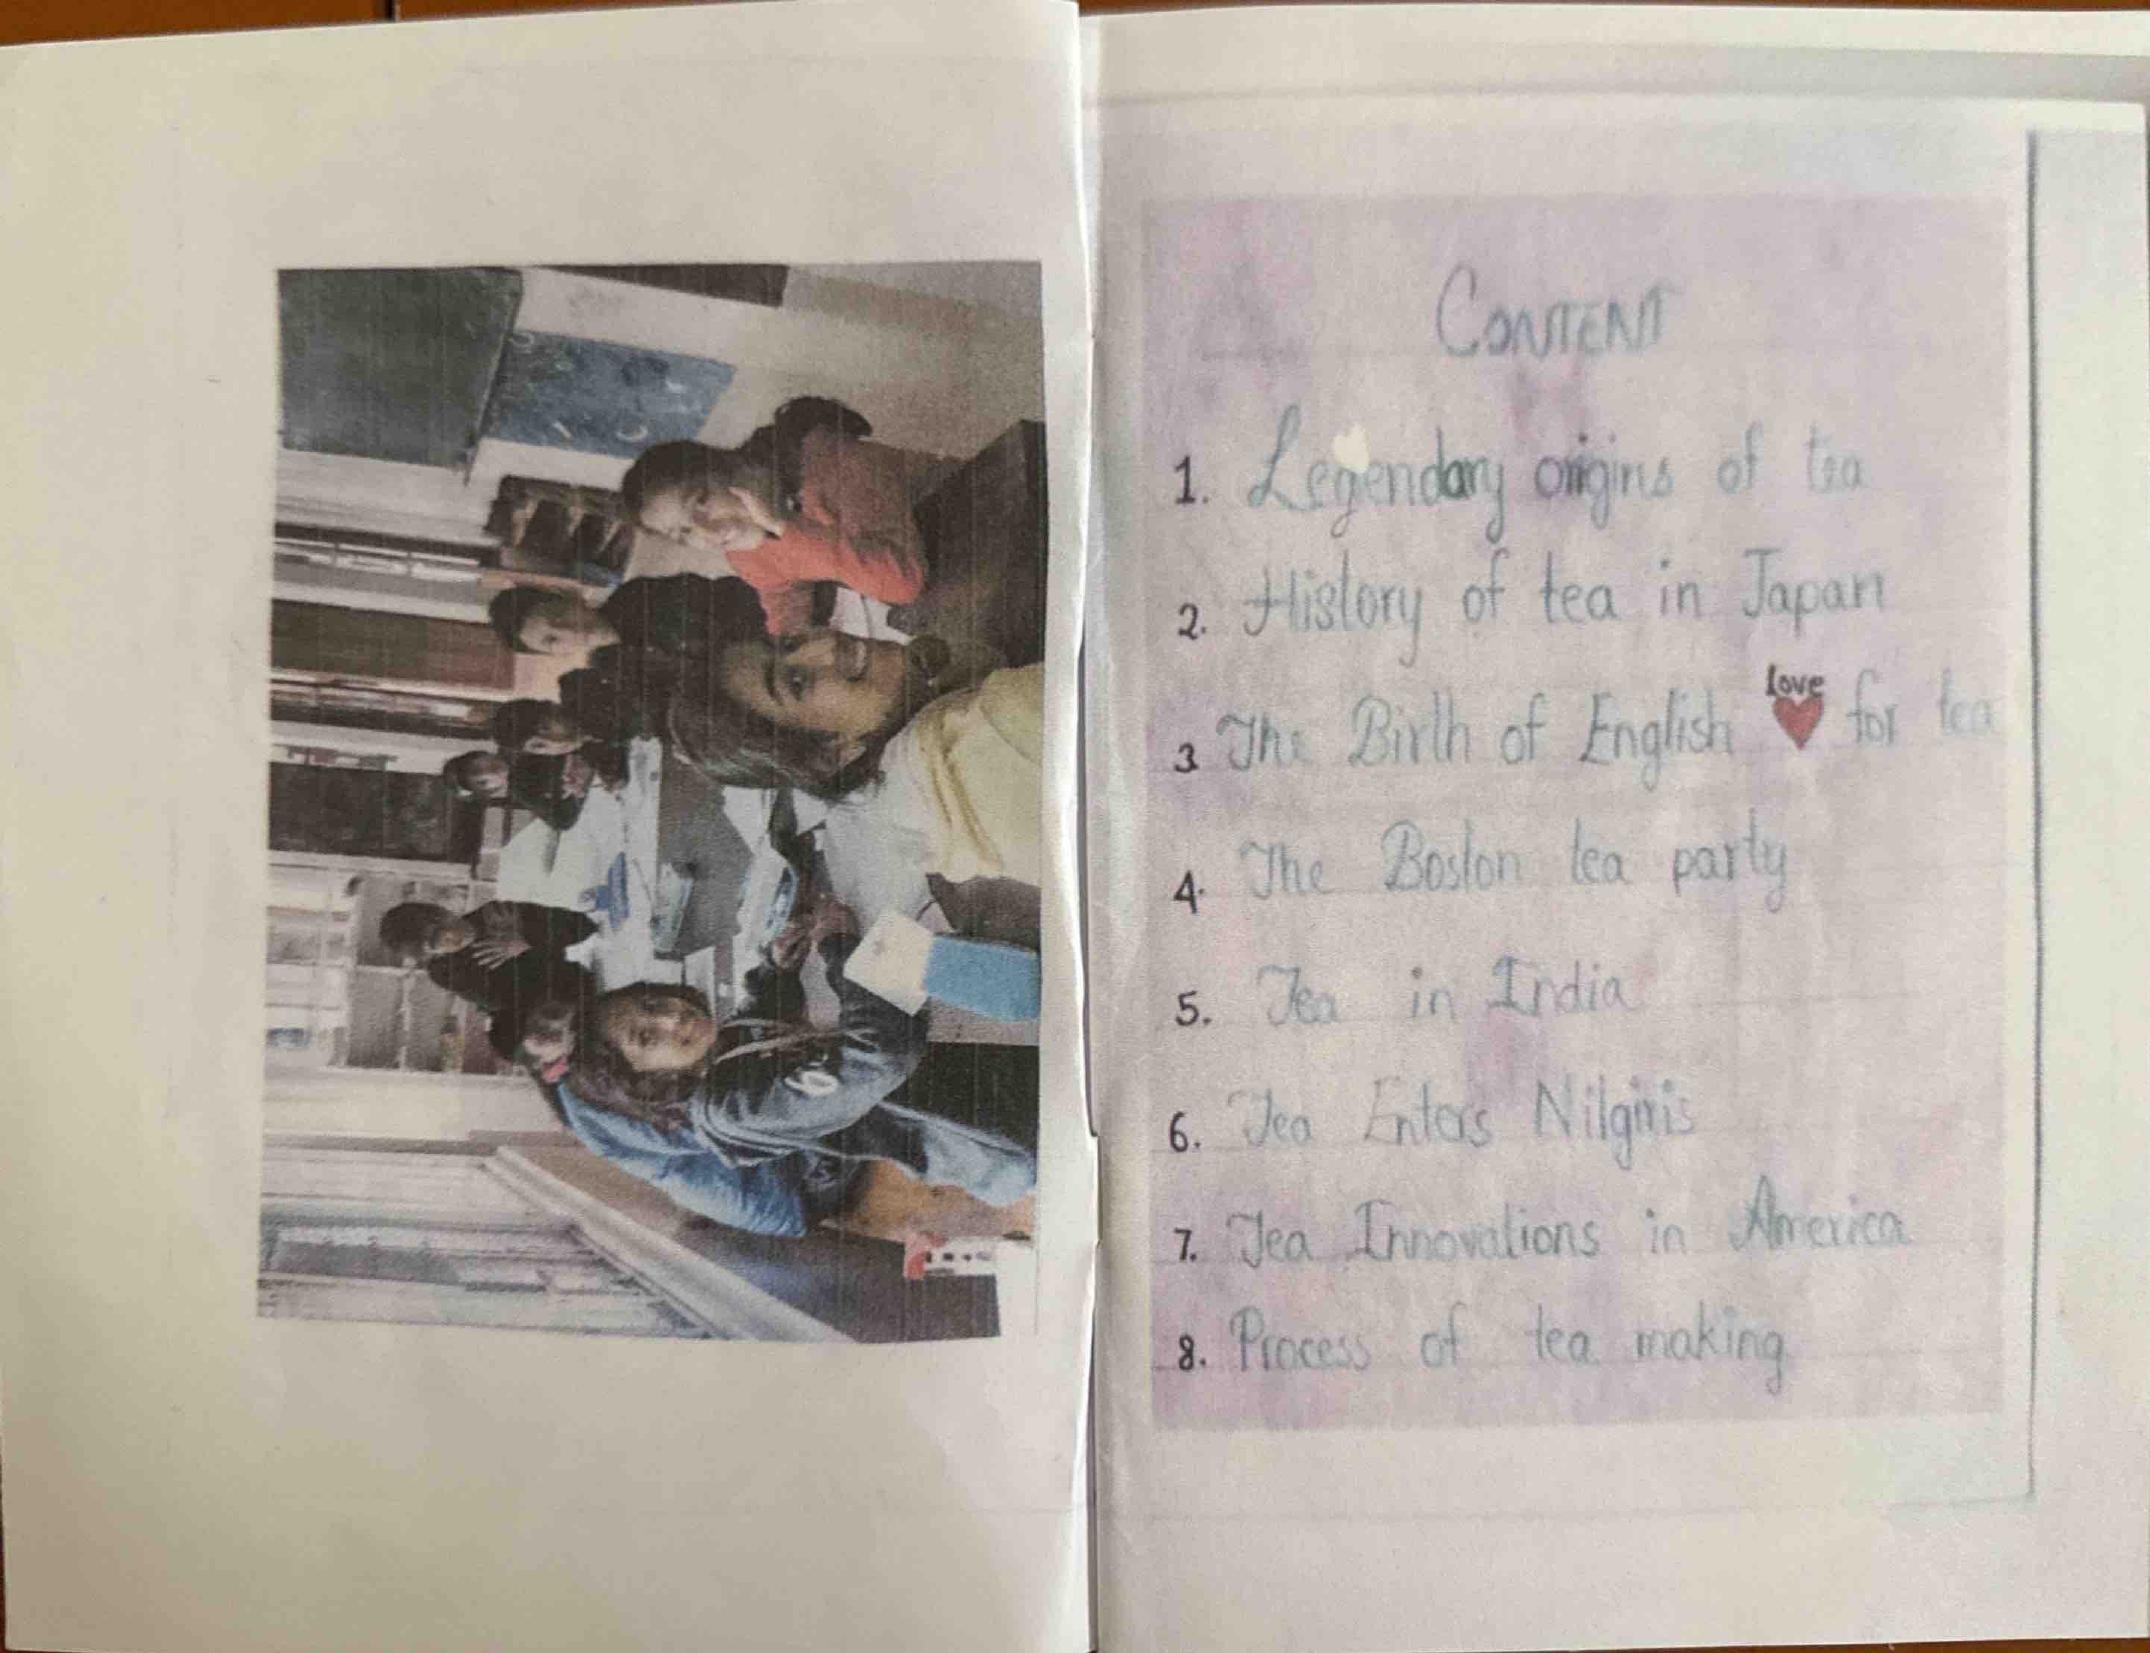 CONTENT
1. Legendary origins of tea
2. History of tea in Japan
3 The Birth of English love ♥ for tea
4. The Boston tea party
5. Tea in India
6. Tea Enters Nilgiris
7. Tea Innovations in America
8. Process of tea making